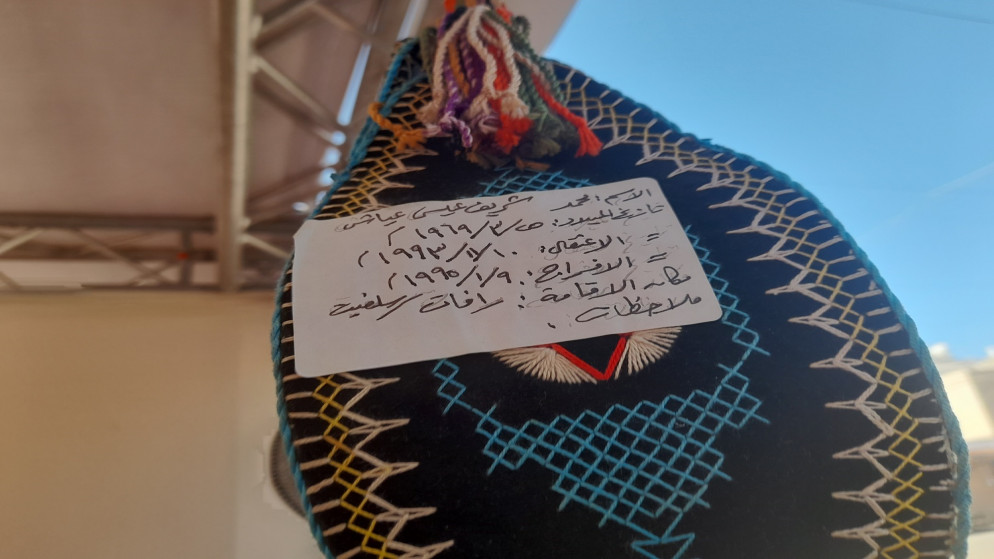 الاسم المحمد شريف عيسى عياش
تاريخ الميلاد: ٥/٣/١٩٦٩م
= الاعتقال: ١٠/١/١٩٩٣م
= الافراج: ٩/١/١٩٩٥م
مكان الاقامة: رافات/سلفيت
ملاحظات: